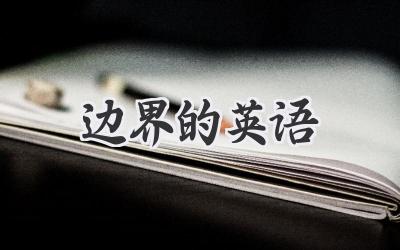 边界的英语